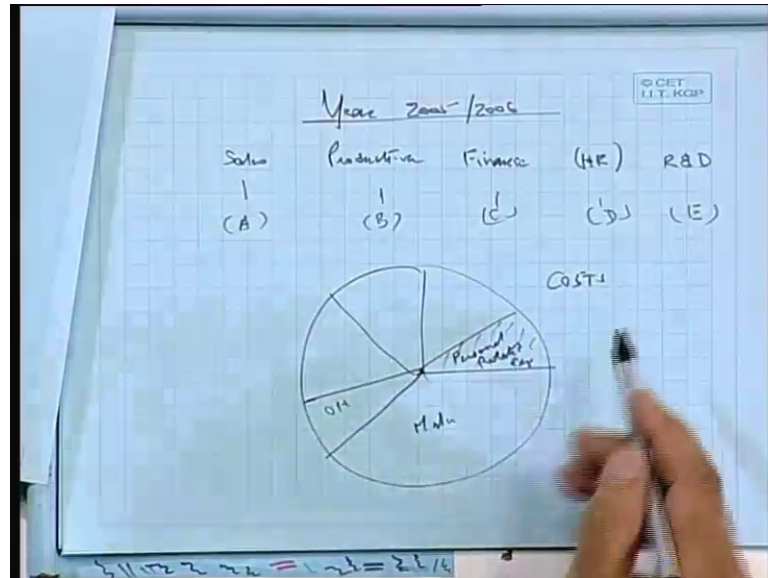 © CET
I.I.T. KGP
Year 2005/2006
Sales Production Finance (HR) R&D
(A) (B) (C) (D) (E)
COSTS
Personnel
Related
Exp
OH